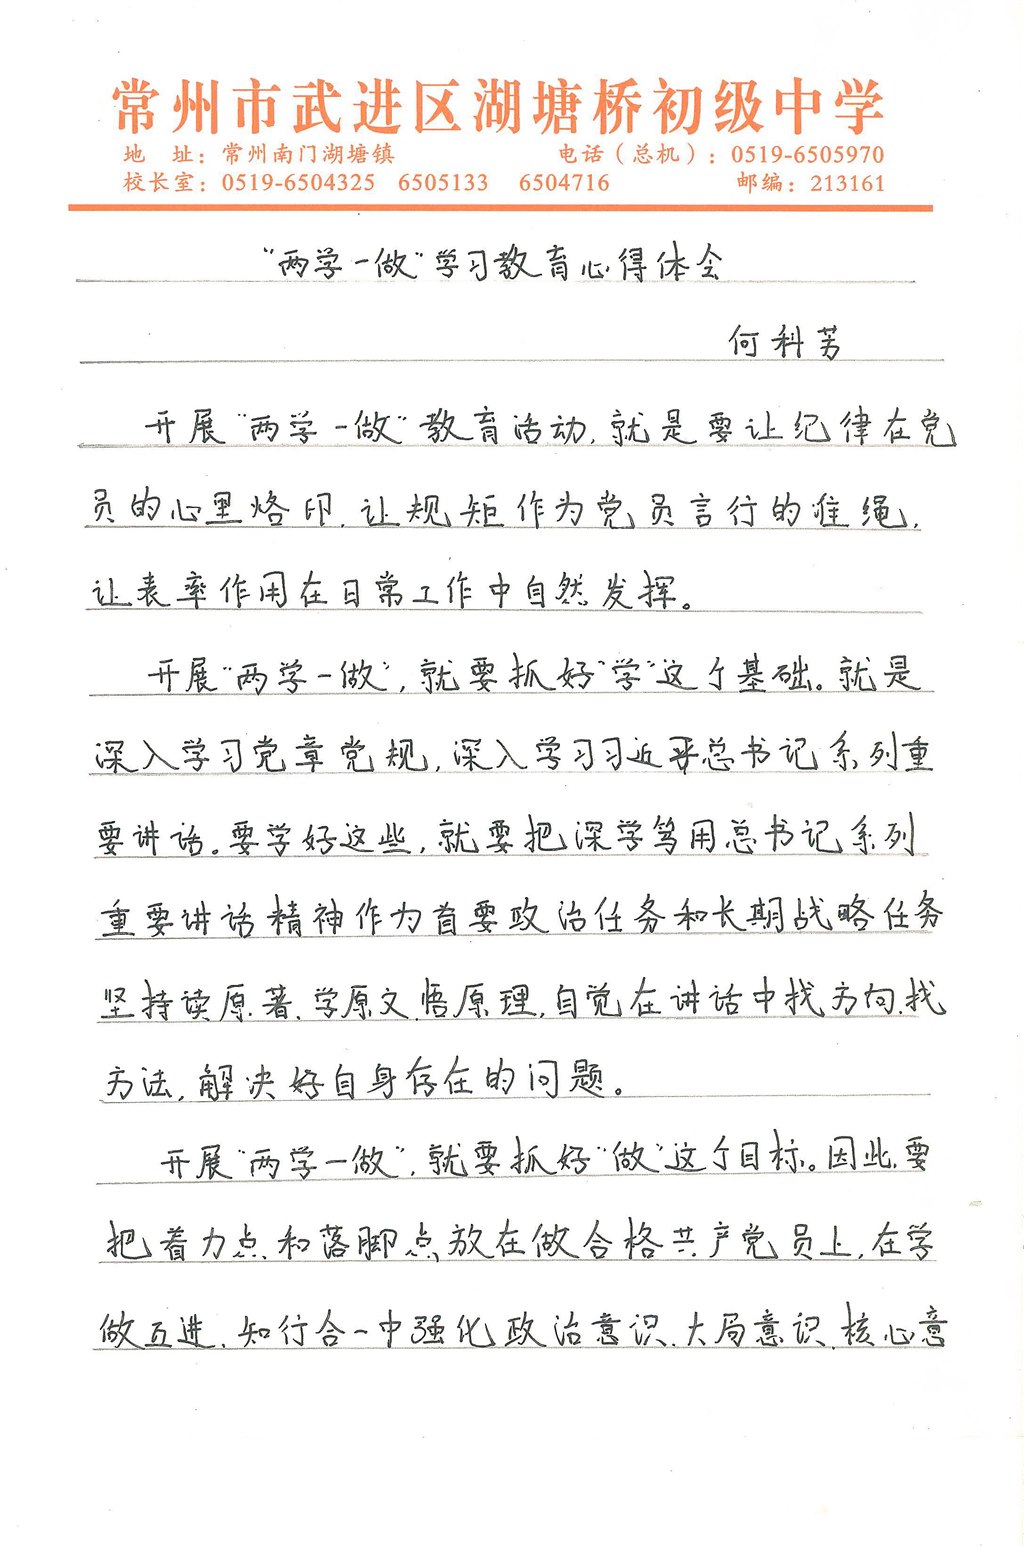 常州市武进区湖塘桥初级中学
地 址：常州南门湖塘镇 电话（总机）：0519-6505970
校长室：0519-6504325 6505133 6504716 邮编：213161
“两学一做”学习教育心得体会
何科芳
开展“两学一做”教育活动，就是要让纪律在党
员的心里烙印，让规矩作为党员言行的准绳，
让表率作用在日常工作中自然发挥。
开展“两学一做”，就要抓好“学”这个基础。就是
深入学习党章党规，深入学习习近平总书记系列重
要讲话。要学好这些，就要把深学笃用总书记系列
重要讲话精神作为首要政治任务和长期战略任务
坚持读原著、学原文、悟原理，自觉在讲话中找方向、找
方法，解决好自身存在的问题。
开展“两学一做”，就要抓好“做”这个目标。因此，要
把着力点和落脚点放在做合格共产党员上，在学
做互进、知行合一中强化政治意识、大局意识、核心意